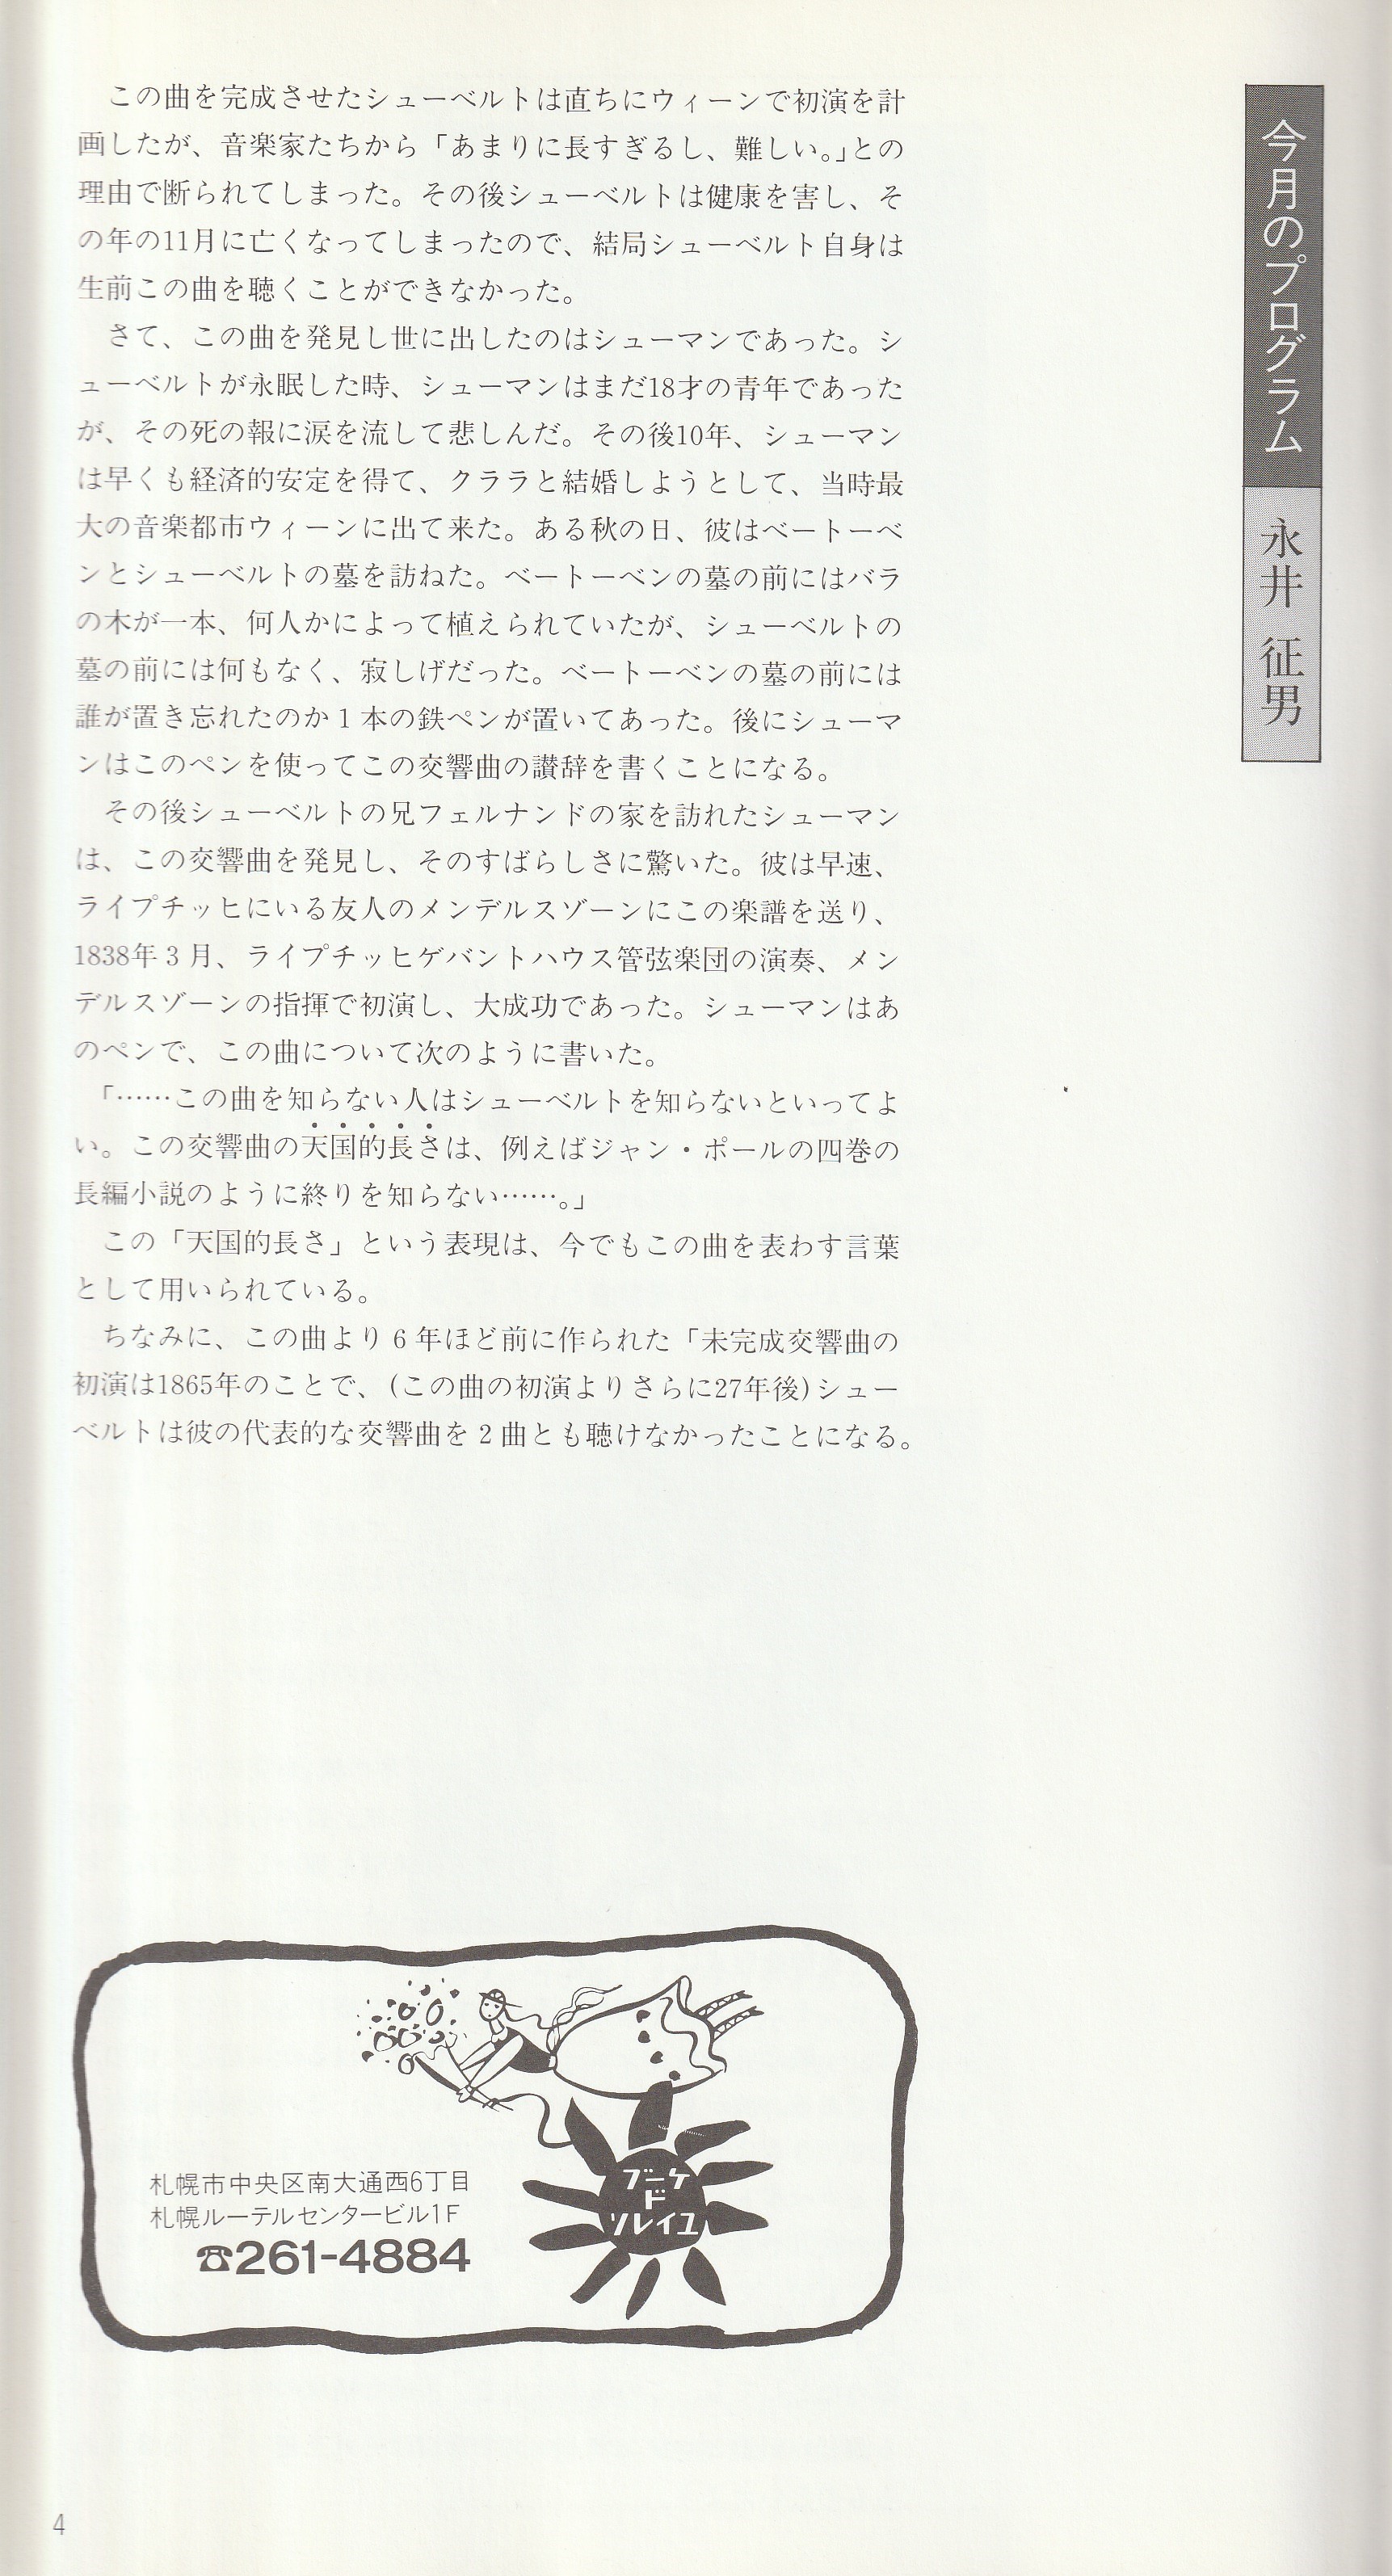 今月のプログラム
永井 征男
この曲を完成させたシューベルトは直ちにウィーンで初演を計
画したが、音楽家たちから「あまりに長すぎるし、難しい。」との
理由で断られてしまった。その後シューベルトは健康を害し、そ
の年の11月に亡くなってしまったので、結局シューベルト自身は
生前この曲を聴くことができなかった。
さて、この曲を発見し世に出したのはシューマンであった。シ
ューベルトが永眠した時、シューマンはまだ18才の青年であった
が、その死の報に涙を流して悲しんだ。その後10年、シューマン
は早くも経済的安定を得て、クララと結婚しようとして、当時最
大の音楽都市ウィーンに出て来た。ある秋の日、彼はベートーベ
ンとシューベルトの墓を訪ねた。ベートーベンの墓の前にはバラ
の木が一本、何人かによって植えられていたが、シューベルトの
墓の前には何もなく、寂しげだった。ベートーベンの墓の前には
誰が置き忘れたのか1本の鉄ペンが置いてあった。後にシューマ
ンはこのペンを使ってこの交響曲の讃辞を書くことになる。
その後シューベルトの兄フェルナンドの家を訪れたシューマン
は、この交響曲を発見し、そのすばらしさに驚いた。彼は早速、
ライプチッヒにいる友人のメンデルスゾーンにこの楽譜を送り、
1838年3月、ライプチッヒゲバントハウス管弦楽団の演奏、メン
デルスゾーンの指揮で初演し、大成功であった。シューマンはあ
のペンで、この曲について次のように書いた。
「……この曲を知らない人はシューベルトを知らないといってよ
い。この交響曲の天国的長さは、例えばジャン・ポールの四巻の
長編小説のように終りを知らない……。」
この「天国的長さ」という表現は、今でもこの曲を表わす言葉
として用いられている。
ちなみに、この曲より6年ほど前に作られた「未完成交響曲の
初演は1865年のことで、(この曲の初演よりさらに27年後)シュー
ベルトは彼の代表的な交響曲を2曲とも聴けなかったことになる。
ブーケ
ド
ソレイユ
札幌市中央区南大通西6丁目
札幌ルーテルセンタービル1F
☎261-4884
4